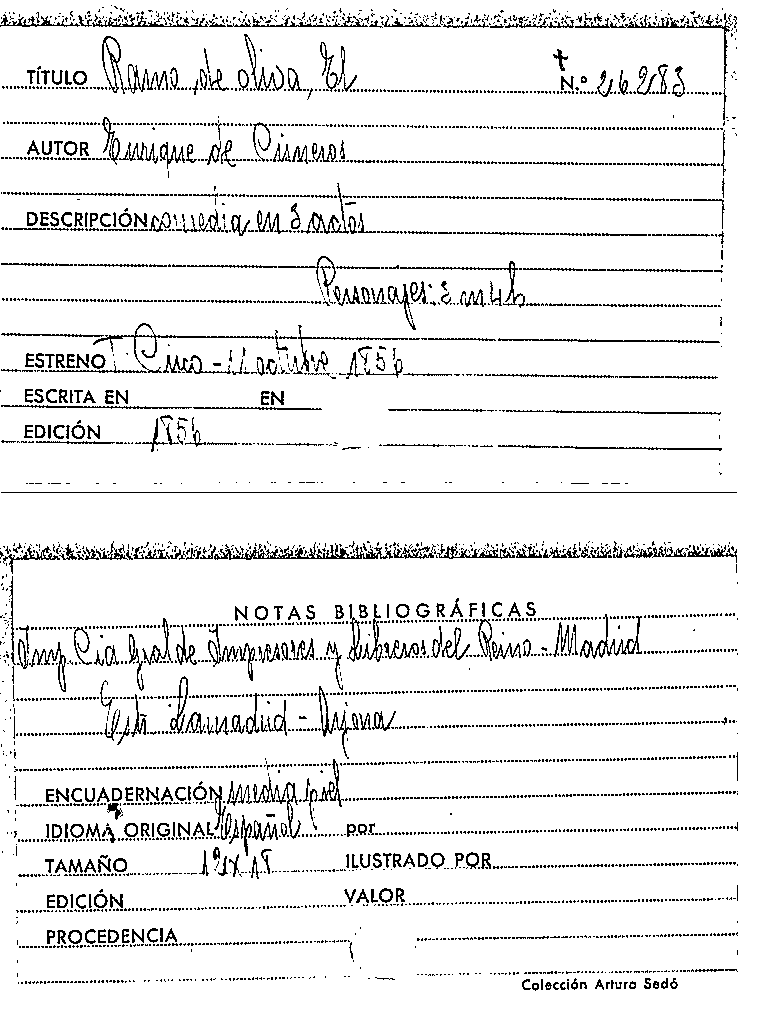 TÍTULO Ramo de oliva, El N.º 26283
AUTOR Enrique de Cisneros
DESCRIPCIÓN comedia en 3 actos
Personajes: 3 m 4 h
ESTRENO T. Circo - 11 octubre 1856
ESCRITA EN EN
EDICIÓN 1856
NOTAS BIBLIOGRÁFICAS
Imp Cia Gral de Impresores y Libreros del Reino - Madrid
Estr Lamadrid - Arjona
ENCUADERNACIÓN media piel
IDIOMA ORIGINAL Español por
TAMAÑO ILUSTRADO POR
EDICIÓN VALOR
PROCEDENCIA
Colección Arturo Sedó